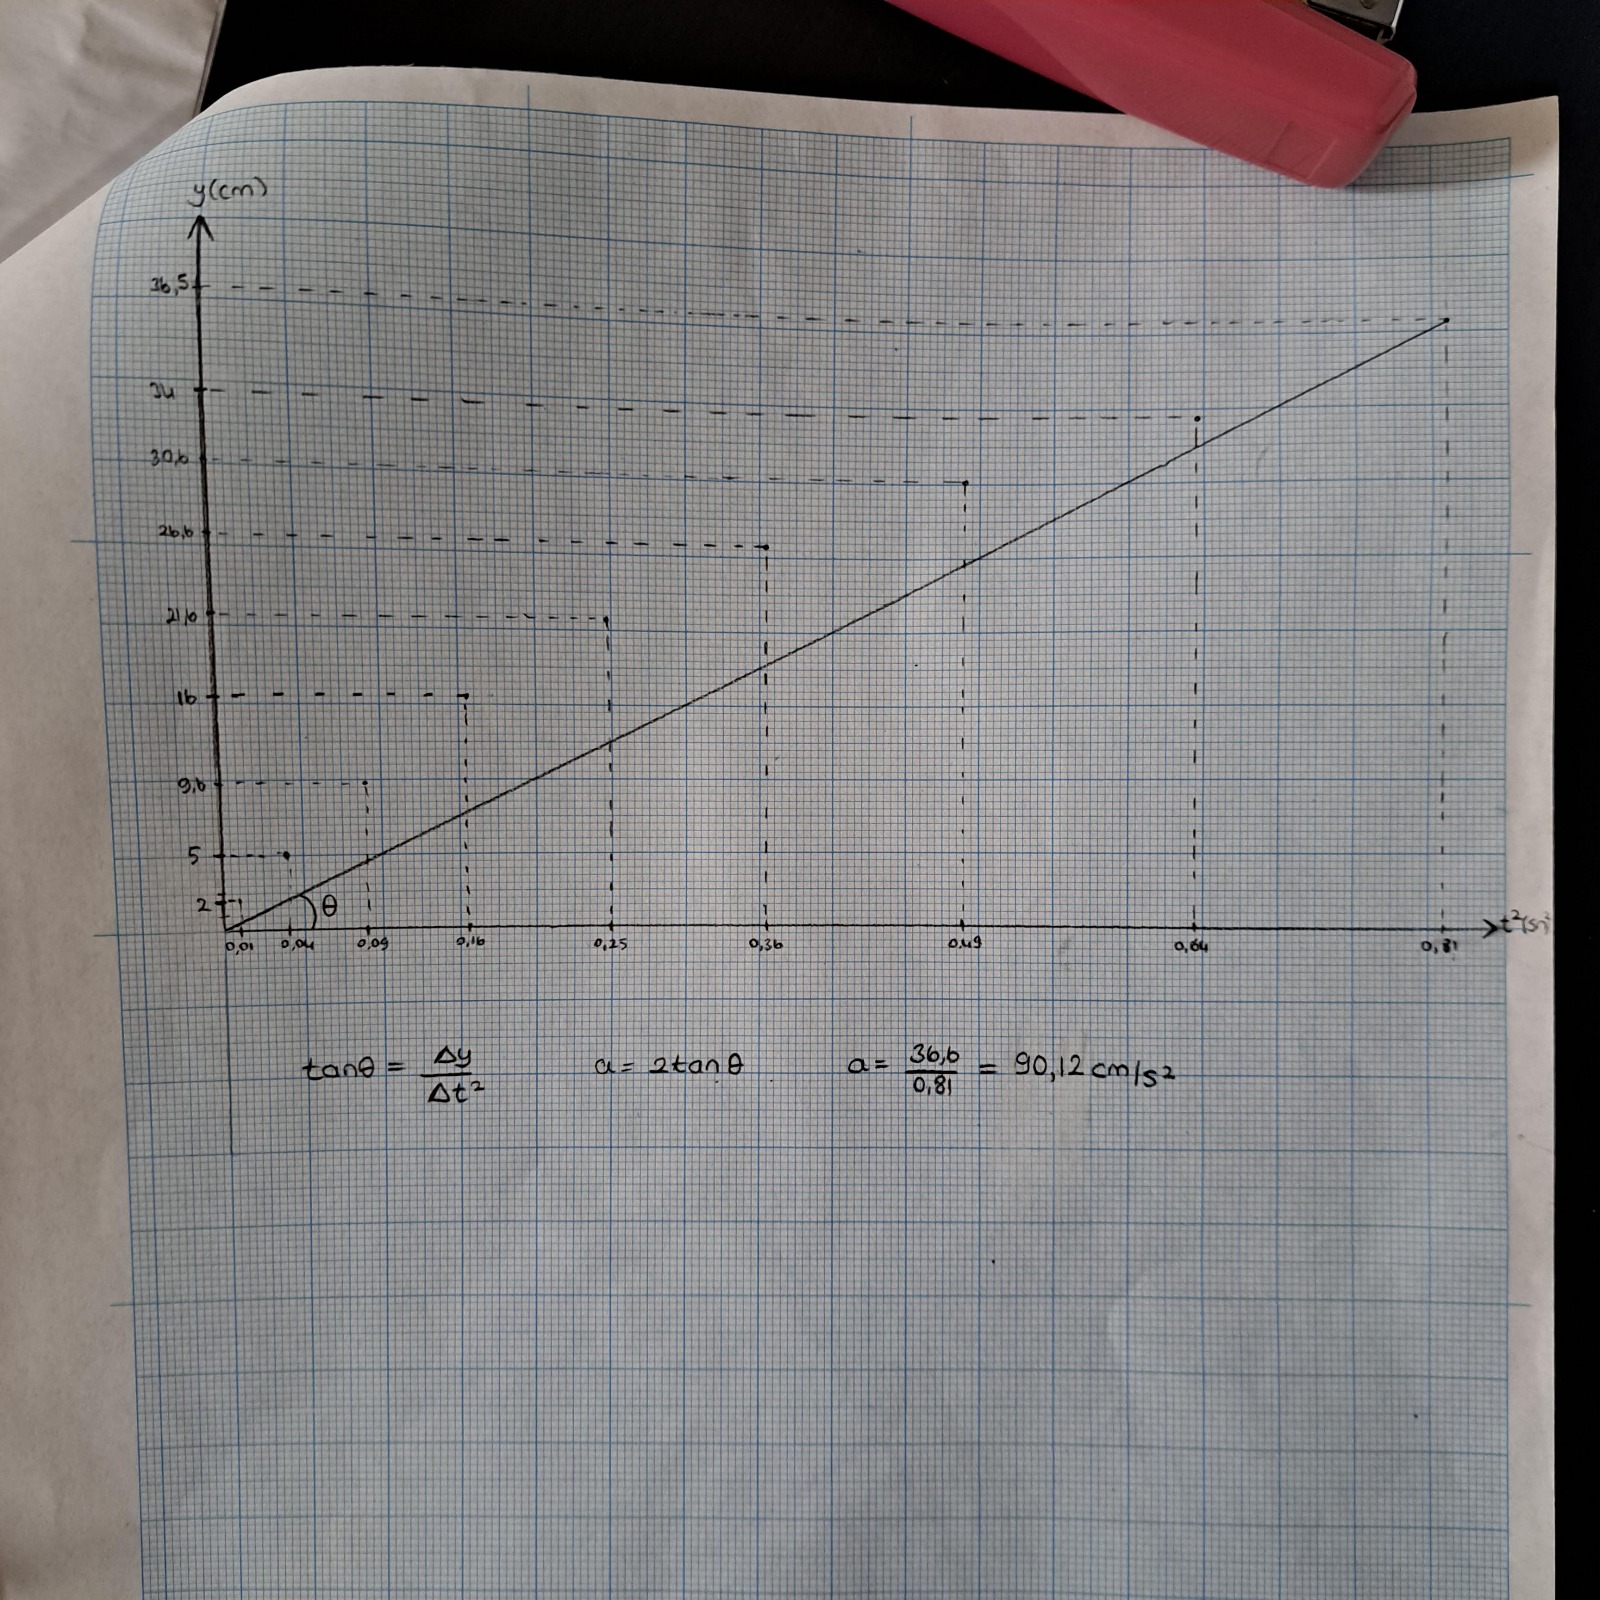 y(cm)
36,5
34
30,6
26,6
21,6
16
9,6
5
2
θ
0,01 0,04 0,09 0,16 0,25 0,36 0,49 0,64 0,81 t²(sn²
tanθ = Δy/Δt² a = 2tanθ a = 36,6/0,81 = 90,12 cm/s²